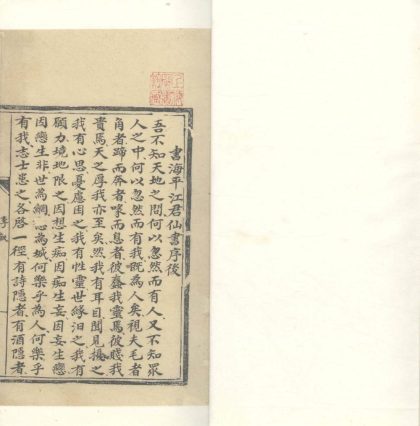 書海平江君仙書序後
吾不知天地之間何以忽然而有人又不知眾
人之中何以忽然而有我既為人矣視夫毛者
角者蹄而奔者喙而息者彼蠢我靈焉彼賤我
貴焉天之厚我亦至矣然我有耳目聞見擾之
我有心思憂慮困之我有性靈世緣汩之我有
願力境地限之因想生痴因痴生妄因妄生戀
因戀生非世為網心為城何樂乎為人何樂乎
有我志士患之各啓一徑有詩隱者有酒隱者